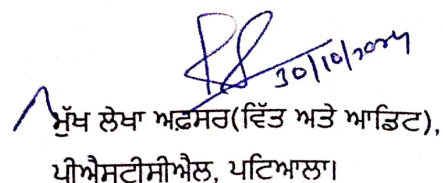 30/10/2024
ਮੁੱਖ ਲੇਖਾ ਅਫ਼ਸਰ(ਵਿੱਤ ਅਤੇ ਆਡਿਟ),
ਪੀਐਸਟੀਸੀਐਲ, ਪਟਿਆਲਾ।